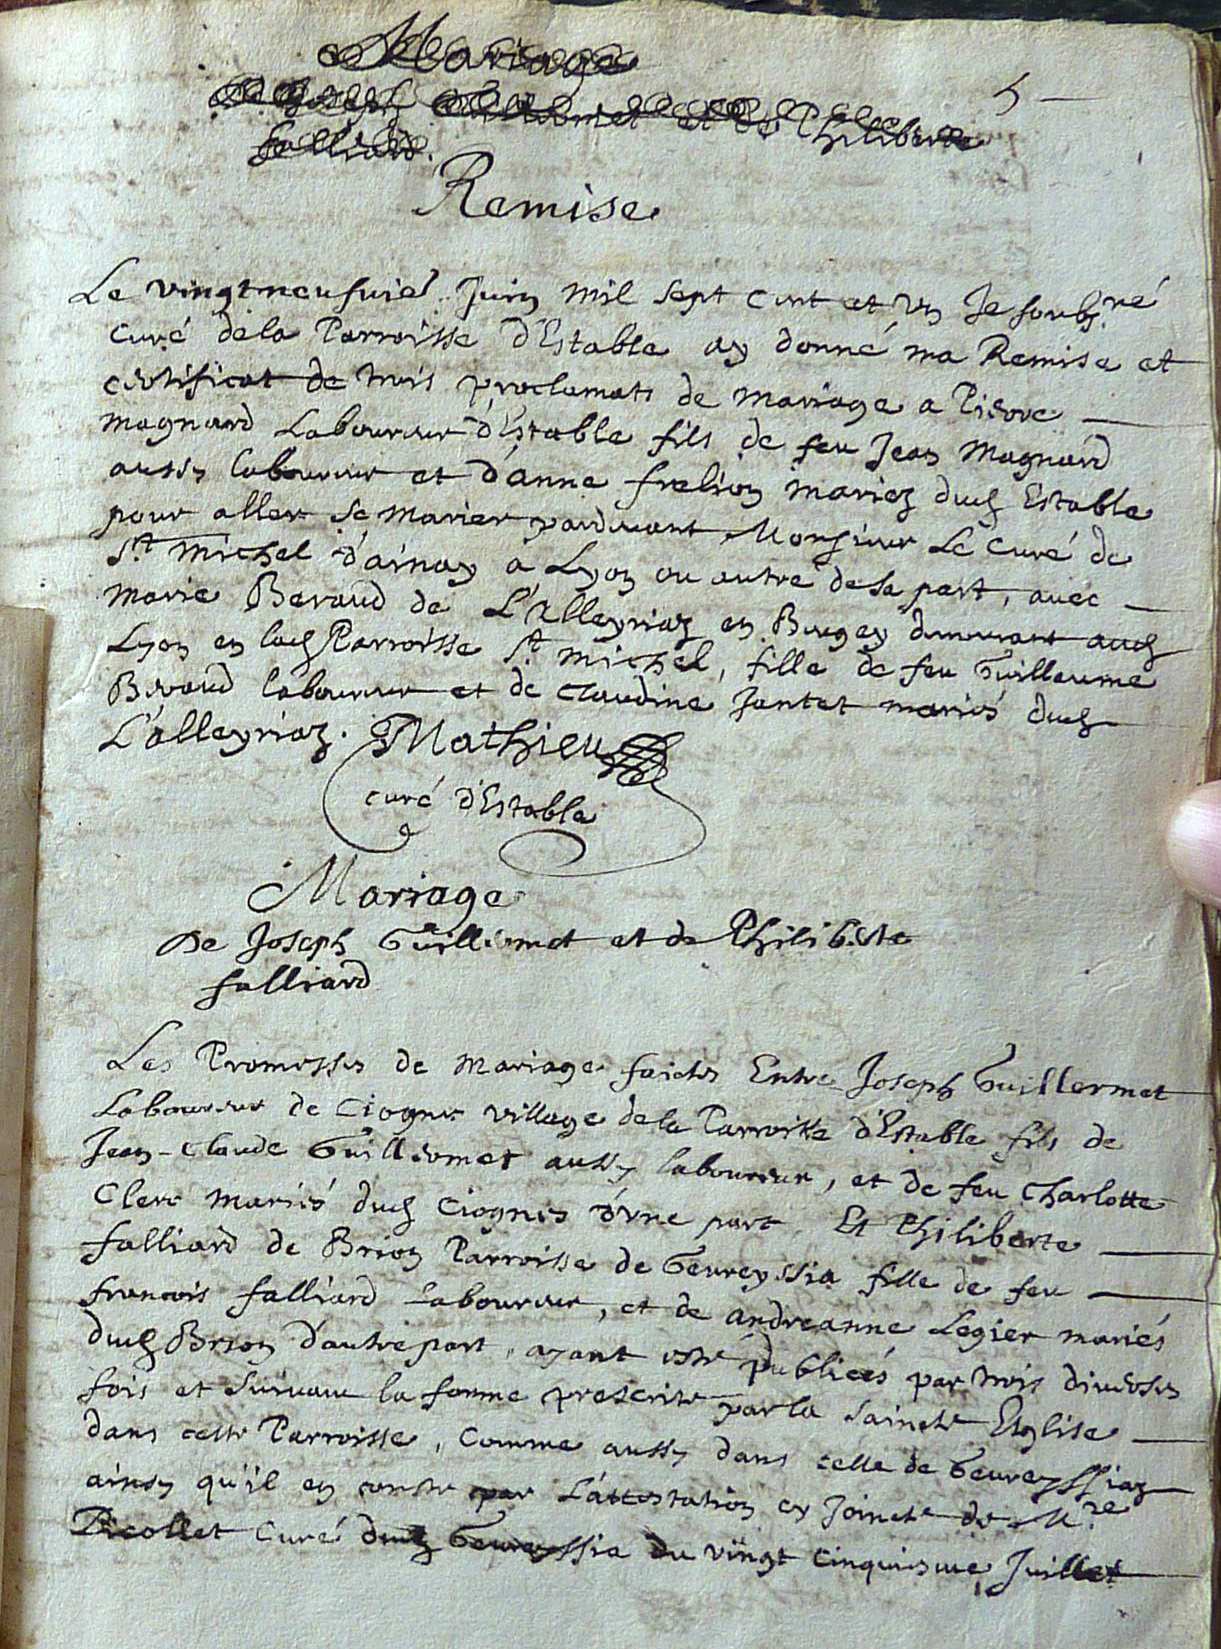 Mariage
de Joseph Guillermet et de Philiberte
falliard.
5
Remise
Le vingt neufvie Juin mil sept cent et un Je soubs.né
curé dela Parroisse d'Estable ay donné ma Remise et
certificat de trois proclamats de mariage a Pierre
magnard Laboureur d'Estable fils de feu Jean Magnard
aussy laboureur et d'anne frelion mariez dud Estable
pour aller se marier pardevant Monsieur Le Curé de
St. Michel d'ainay a Lyon ou autre de sa part, avec
Marie Beraud de L'Alleyriaz en Bugey demeurant aud
Lyon en lad Parroisse St michel, fille de feu Guillaume
Beraud laboureur et de claudine Jantet mariés dud
L'alleyriaz. Mathieu
curé d'Estable
Mariage
De Joseph Guillermet et de Philiberte
falliard
Les Promesses de Mariage faictes Entre Joseph Guillermet
Laboureur de Ciognes village dela Parroisse d'Estable fils de
Jean-Claude Guillermet aussy laboureur, et de feu Charlotte
Clerc mariés dud Ciognes d'vne part Et Philiberte
falliard de Brion Parroisse de Geureyssia fille de feu
francois falliard Laboureur, et de andreanne Legier mariés
dud Brion d'autre part, ayant este publiées par trois diverses
fois et suivant la forme prescrite par la saincte Eglise
dans cette Parroisse, Comme aussy dans celle de Geureyssiaz
ainsy qu'il en conste par L'attestation cy Jointe de Mre
Picollet Curé dud Geureyssia du vingt cinquiesme Juillet